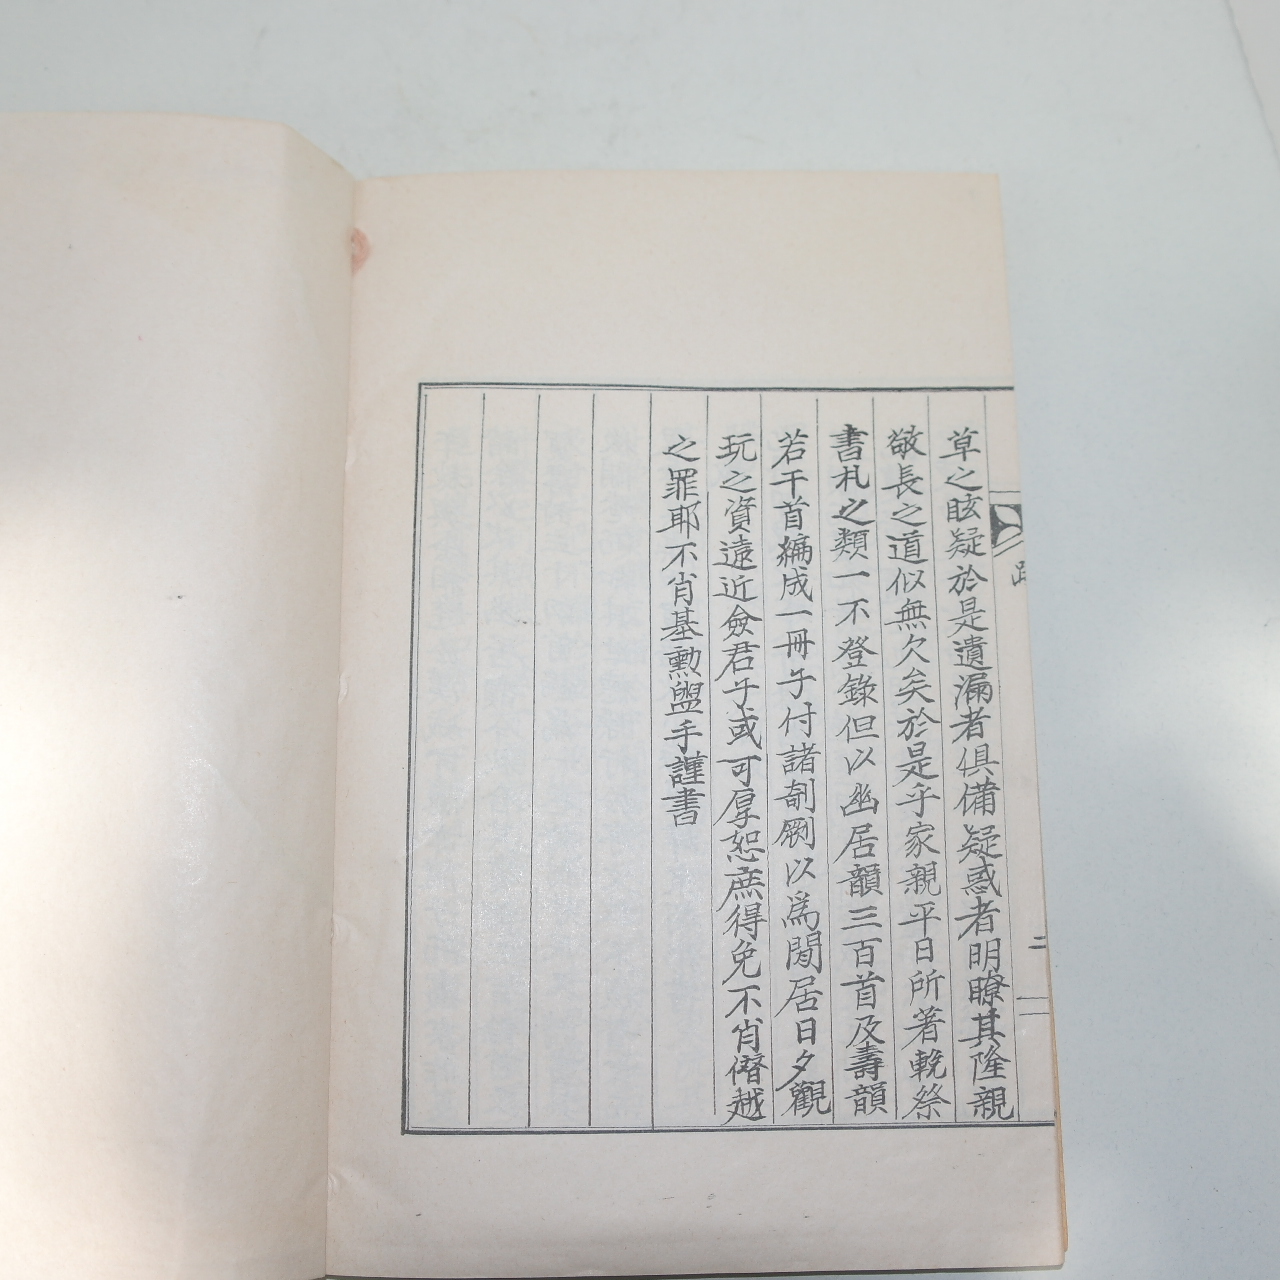 草之眩疑於是遺漏者俱備疑惑者明瞭其隆親
敬長之道似無欠矣於是乎家親平日所著輓祭
書札之類一不登錄但以幽居韻三百首及壽韻
若干首編成一冊子付諸剞劂以爲閒居日夕觀
玩之資遠近僉君子或可厚恕庶得免不肖僭越
之罪耶不肖基勳盥手謹書
跋
二